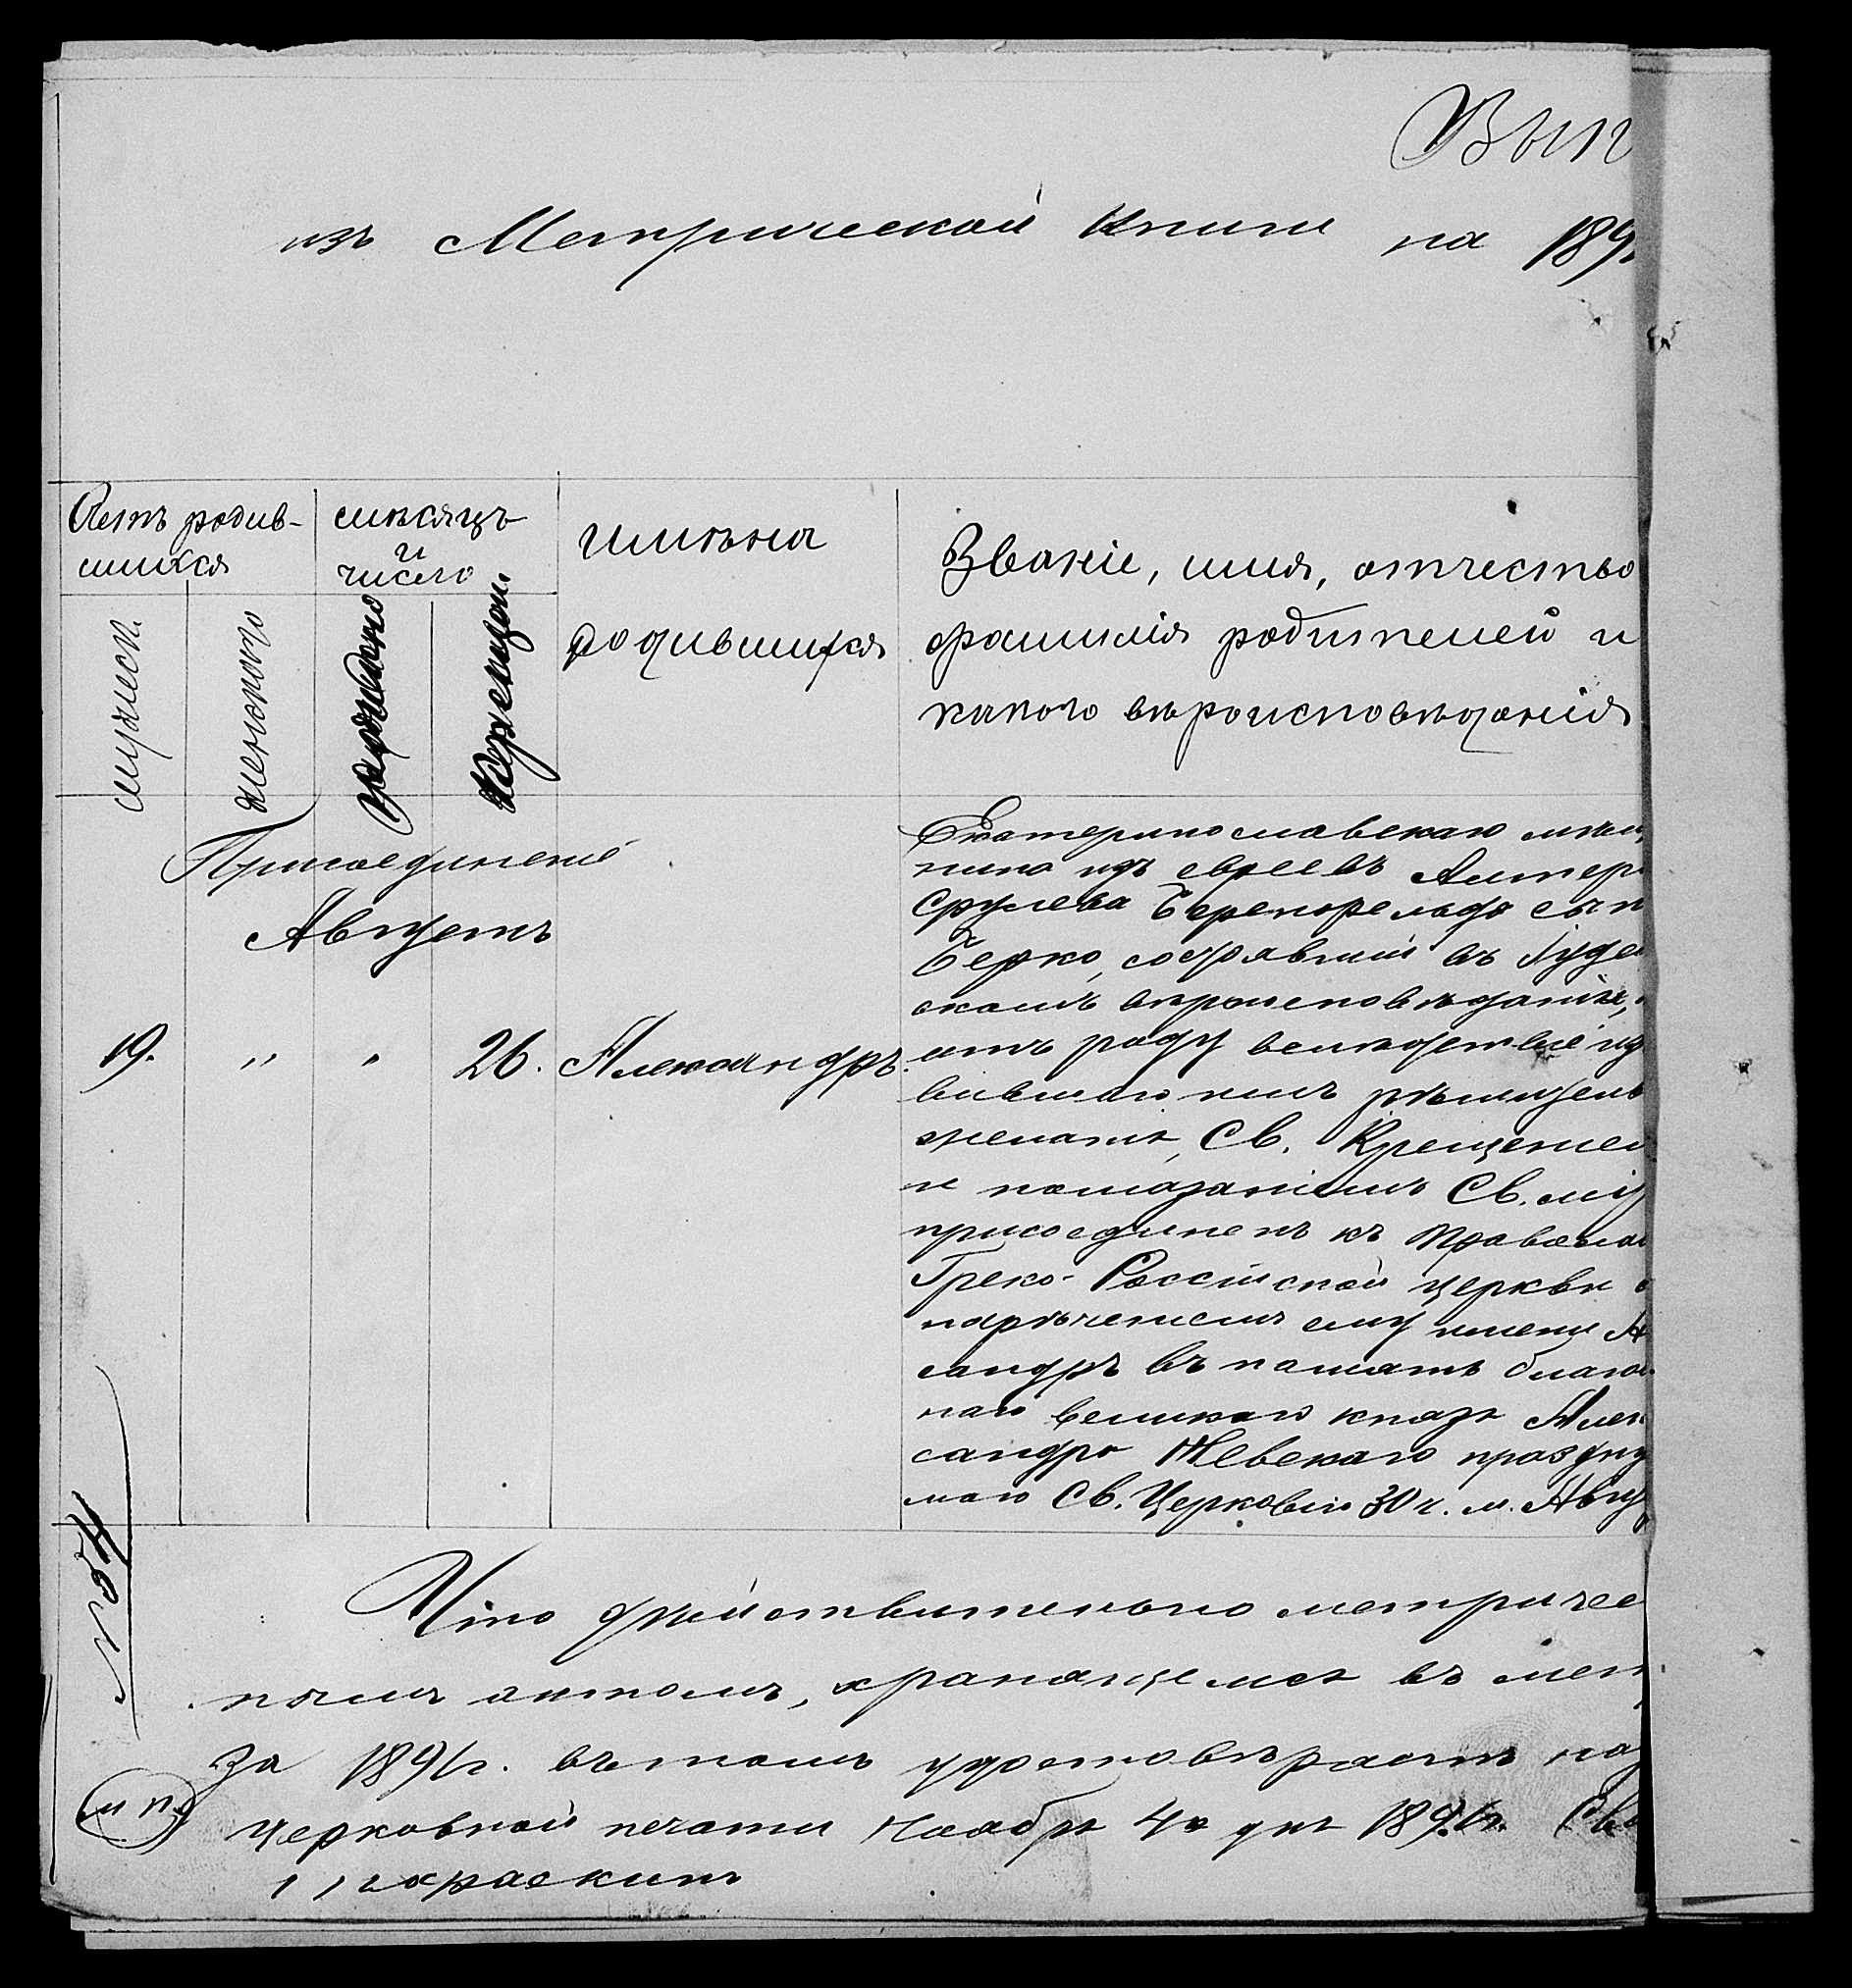 Вып
изъ Метрической Книги на 189
Летъ родив-
шихся
мѣсяцъ
и
число
имѣна
родившихся
Званіе, имя, отчество
фамилія родителей и
какого вѣроисповѣданія
мужеск.
женского
крещенія
Присоединеніе
Августъ
19. " " 26. Александръ.
Екатеринославскаго мѣщ
нина изъ евреевъ Алтера
Срулева Беренфельда сын
Берко, состоявшій въ Іудей
скомъ вѣроисповѣданіи,
отъ роду вслѣдствіе изъ
вившаго имъ
желанія, Св. Крещеніем
и помазаніемъ Св. мѵ
присоединенъ къ Православ
Греко-Россійской церкви
нарѣченіемъ ему имени А
сандръ въ память благов
наго великаго князя Алек
сандра Невскаго праздну
маго Св. Церковію 30 ч. м. Авгу
№ 54
Что дѣйствительно метричес
нымъ актомъ, хранящемся въ мет
за 1891 г. въ томъ удостовѣряетъ на
церковной печати Ноября 4 дня 1891 г. Св
м п.